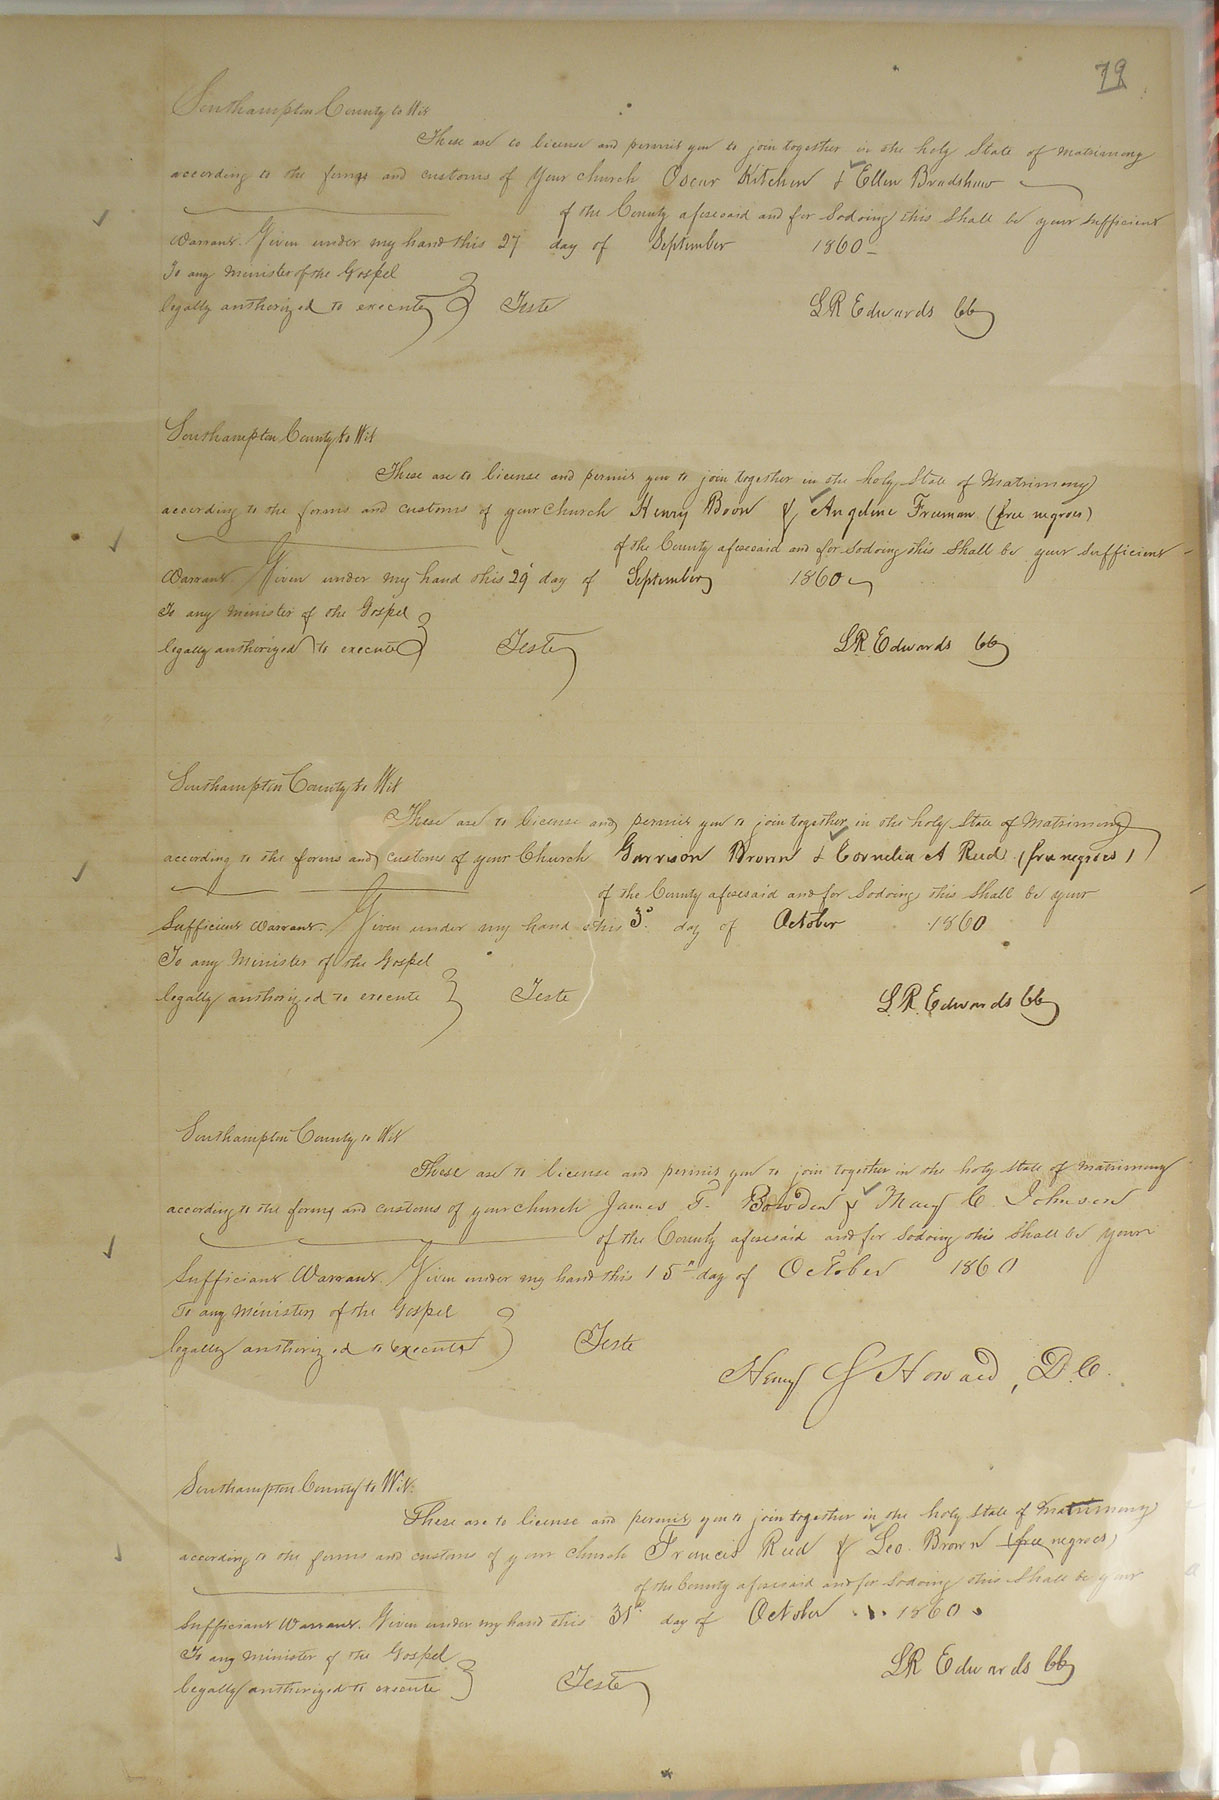 79
Southampton County to Wit
These are to license and permit you to join together in the holy State of Matrimony
according to the forms and customs of your church Oscar Kitchen & Ellen Bradshaw
of the County aforesaid and for so doing this Shall be your sufficient
Warrant. Given under my hand this 27 day of September 1860
To any Minister of the Gospel
legally authorized to execute Teste LR Edwards CC
Southampton County to Wit
These are to license and permit you to join together in the holy State of Matrimony
according to the forms and customs of your church Henry Boon & Angeline Freeman (free negroes)
of the County aforesaid and for so doing this Shall be your sufficient
Warrant. Given under my hand this 29 day of September 1860
To any Minister of the Gospel
legally authorized to execute Teste LR Edwards CC
Southampton County to Wit
These are to license and permit you to join together in the holy State of Matrimony
according to the forms and customs of your Church Garrison Brown & Cornelia A Reed (free negroes)
of the County aforesaid and for so doing this Shall be your
Sufficient Warrant. Given under my hand this 3d day of October 1860
To any Minister of the Gospel
legally authorized to execute Teste LR Edwards CC
Southampton County to Wit
These are to license and permit you to join together in the holy State of Matrimony
according to the forms and customs of your church James F. Bowden & Mary C. Johnson
of the County aforesaid and for so doing this Shall be your
Sufficient Warrant. Given under my hand this 15th day of October 1860
To any Minister of the Gospel
legally authorized to execute Teste
Henry Howard, D.C.
Southampton County to Wit.
These are to license and permit you to join together in the holy State of Matrimony
according to the forms and customs of your church Francis Reed & Geo. Brown (free negroes)
of the County aforesaid and for so doing this Shall be your
Sufficient Warrant. Given under my hand this 31st day of October 1860
To any Minister of the Gospel
legally authorized to execute Teste LR Edwards CC